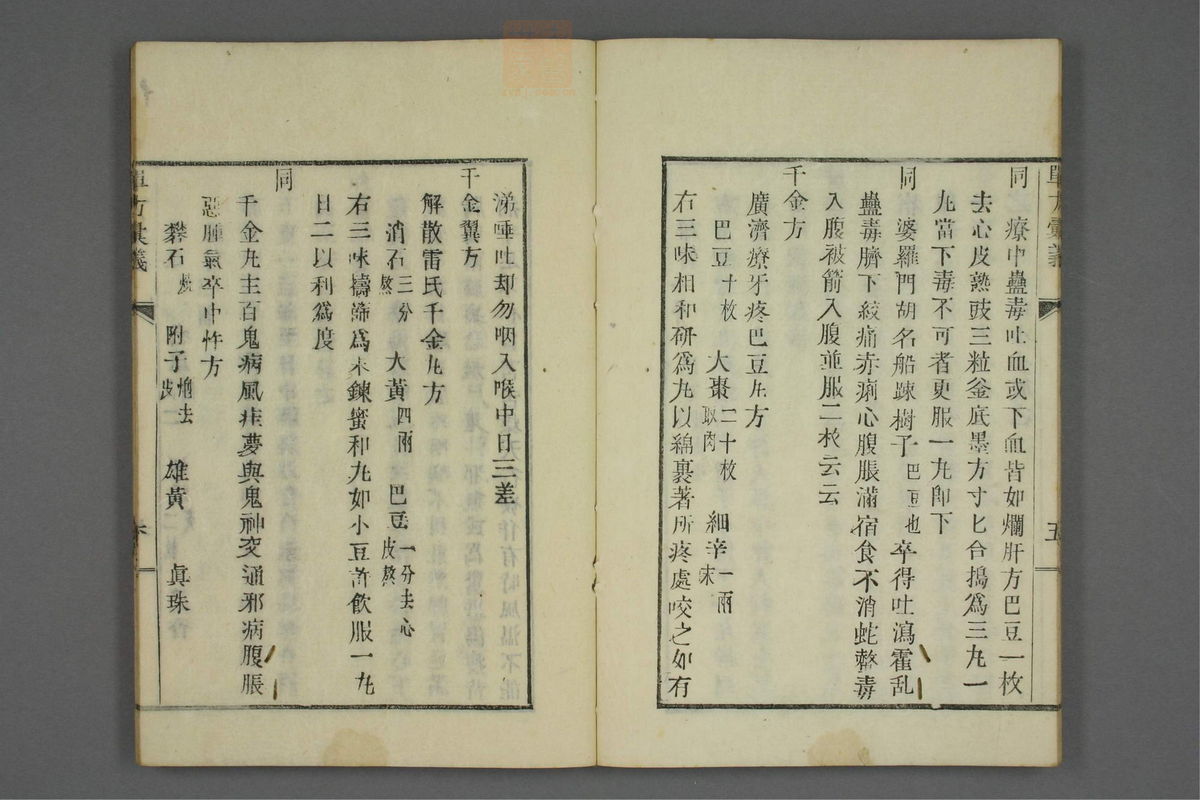 單方彙義
五
同
療中蠱毒吐血或下血皆如爛肝方巴豆一枚
去心皮熟豉三粒釜底墨方寸匕合搗爲三丸一
丸當下毒不可者更服一丸卽下
同
婆羅門胡名船疎樹子巴豆也卒得吐瀉霍乱
蠱毒臍下絞痛赤痢心腹脹滿宿食不消蛇螫毒
入腹被箭入腹並服二枚云云
千金方
廣濟療牙疼巴豆丸方
巴豆十枚 大棗二十枚取肉 細辛一兩末
右三味相和研爲丸以綿裹著所疼處咬之如有
涕唾吐却勿咽入喉中日三差
千金翼方
解散雷氏千金丸方
消石三分熬 大黃四兩 巴豆一分去心皮熬
右三味擣篩爲末鍊蜜和丸如小豆許飮服一丸
日二以利爲度
同
千金丸主百鬼病風疰夢與鬼神交通邪病腹脹
惡腫氣卒中忤方
礬石 附子炮去皮 雄黃 眞珠
單方彙義